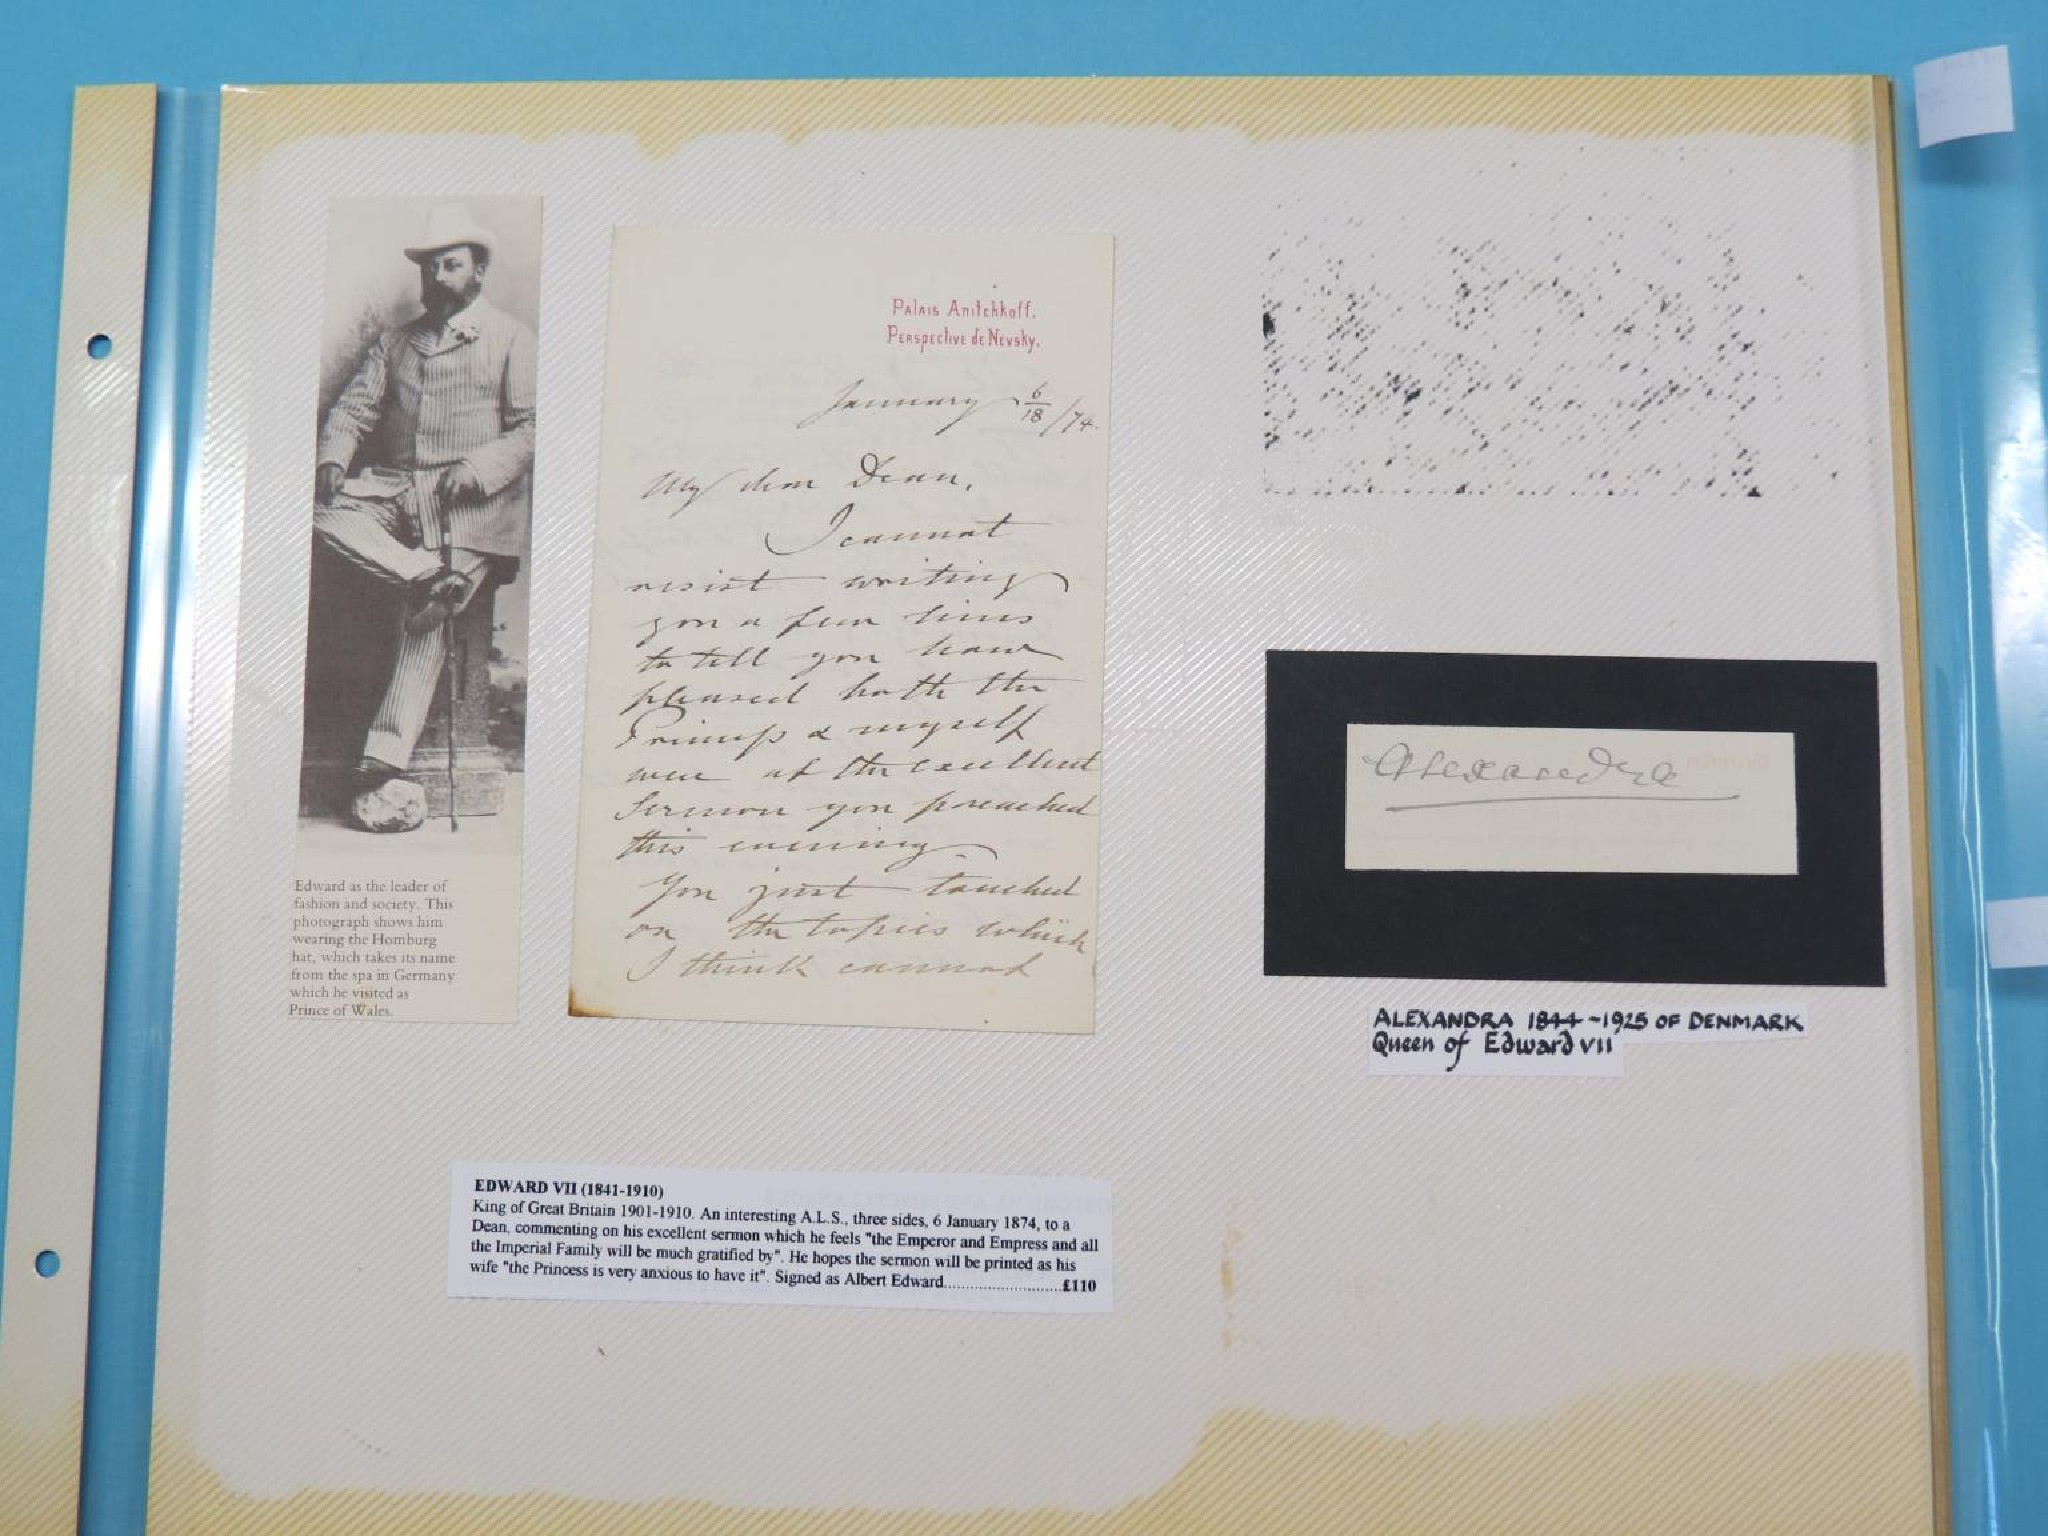 Palais Anitchkoff.
Perspective de Nevsky.
January 6/18 /74.
My dear Dean,
I cannot
resist writing
you a few lines
to tell you how
pleased both the
Princess & myself
were at the excellent
Sermon you preached
this evening
You just touched
on the topics which
I think cannot
Edward as the leader of
fashion and society. This
photograph shows him
wearing the Homburg
hat, which takes its name
from the spa in Germany
which he visited as
Prince of Wales.
Alexandra
ALEXANDRA 1844 -1925 OF DENMARK
Queen of Edward VII
EDWARD VII (1841-1910)
King of Great Britain 1901-1910. An interesting A.L.S., three sides, 6 January 1874, to a
Dean, commenting on his excellent sermon which he feels "the Emperor and Empress and all
the Imperial Family will be much gratified by". He hopes the sermon will be printed as his
wife "the Princess is very anxious to have it". Signed as Albert Edward............................£110